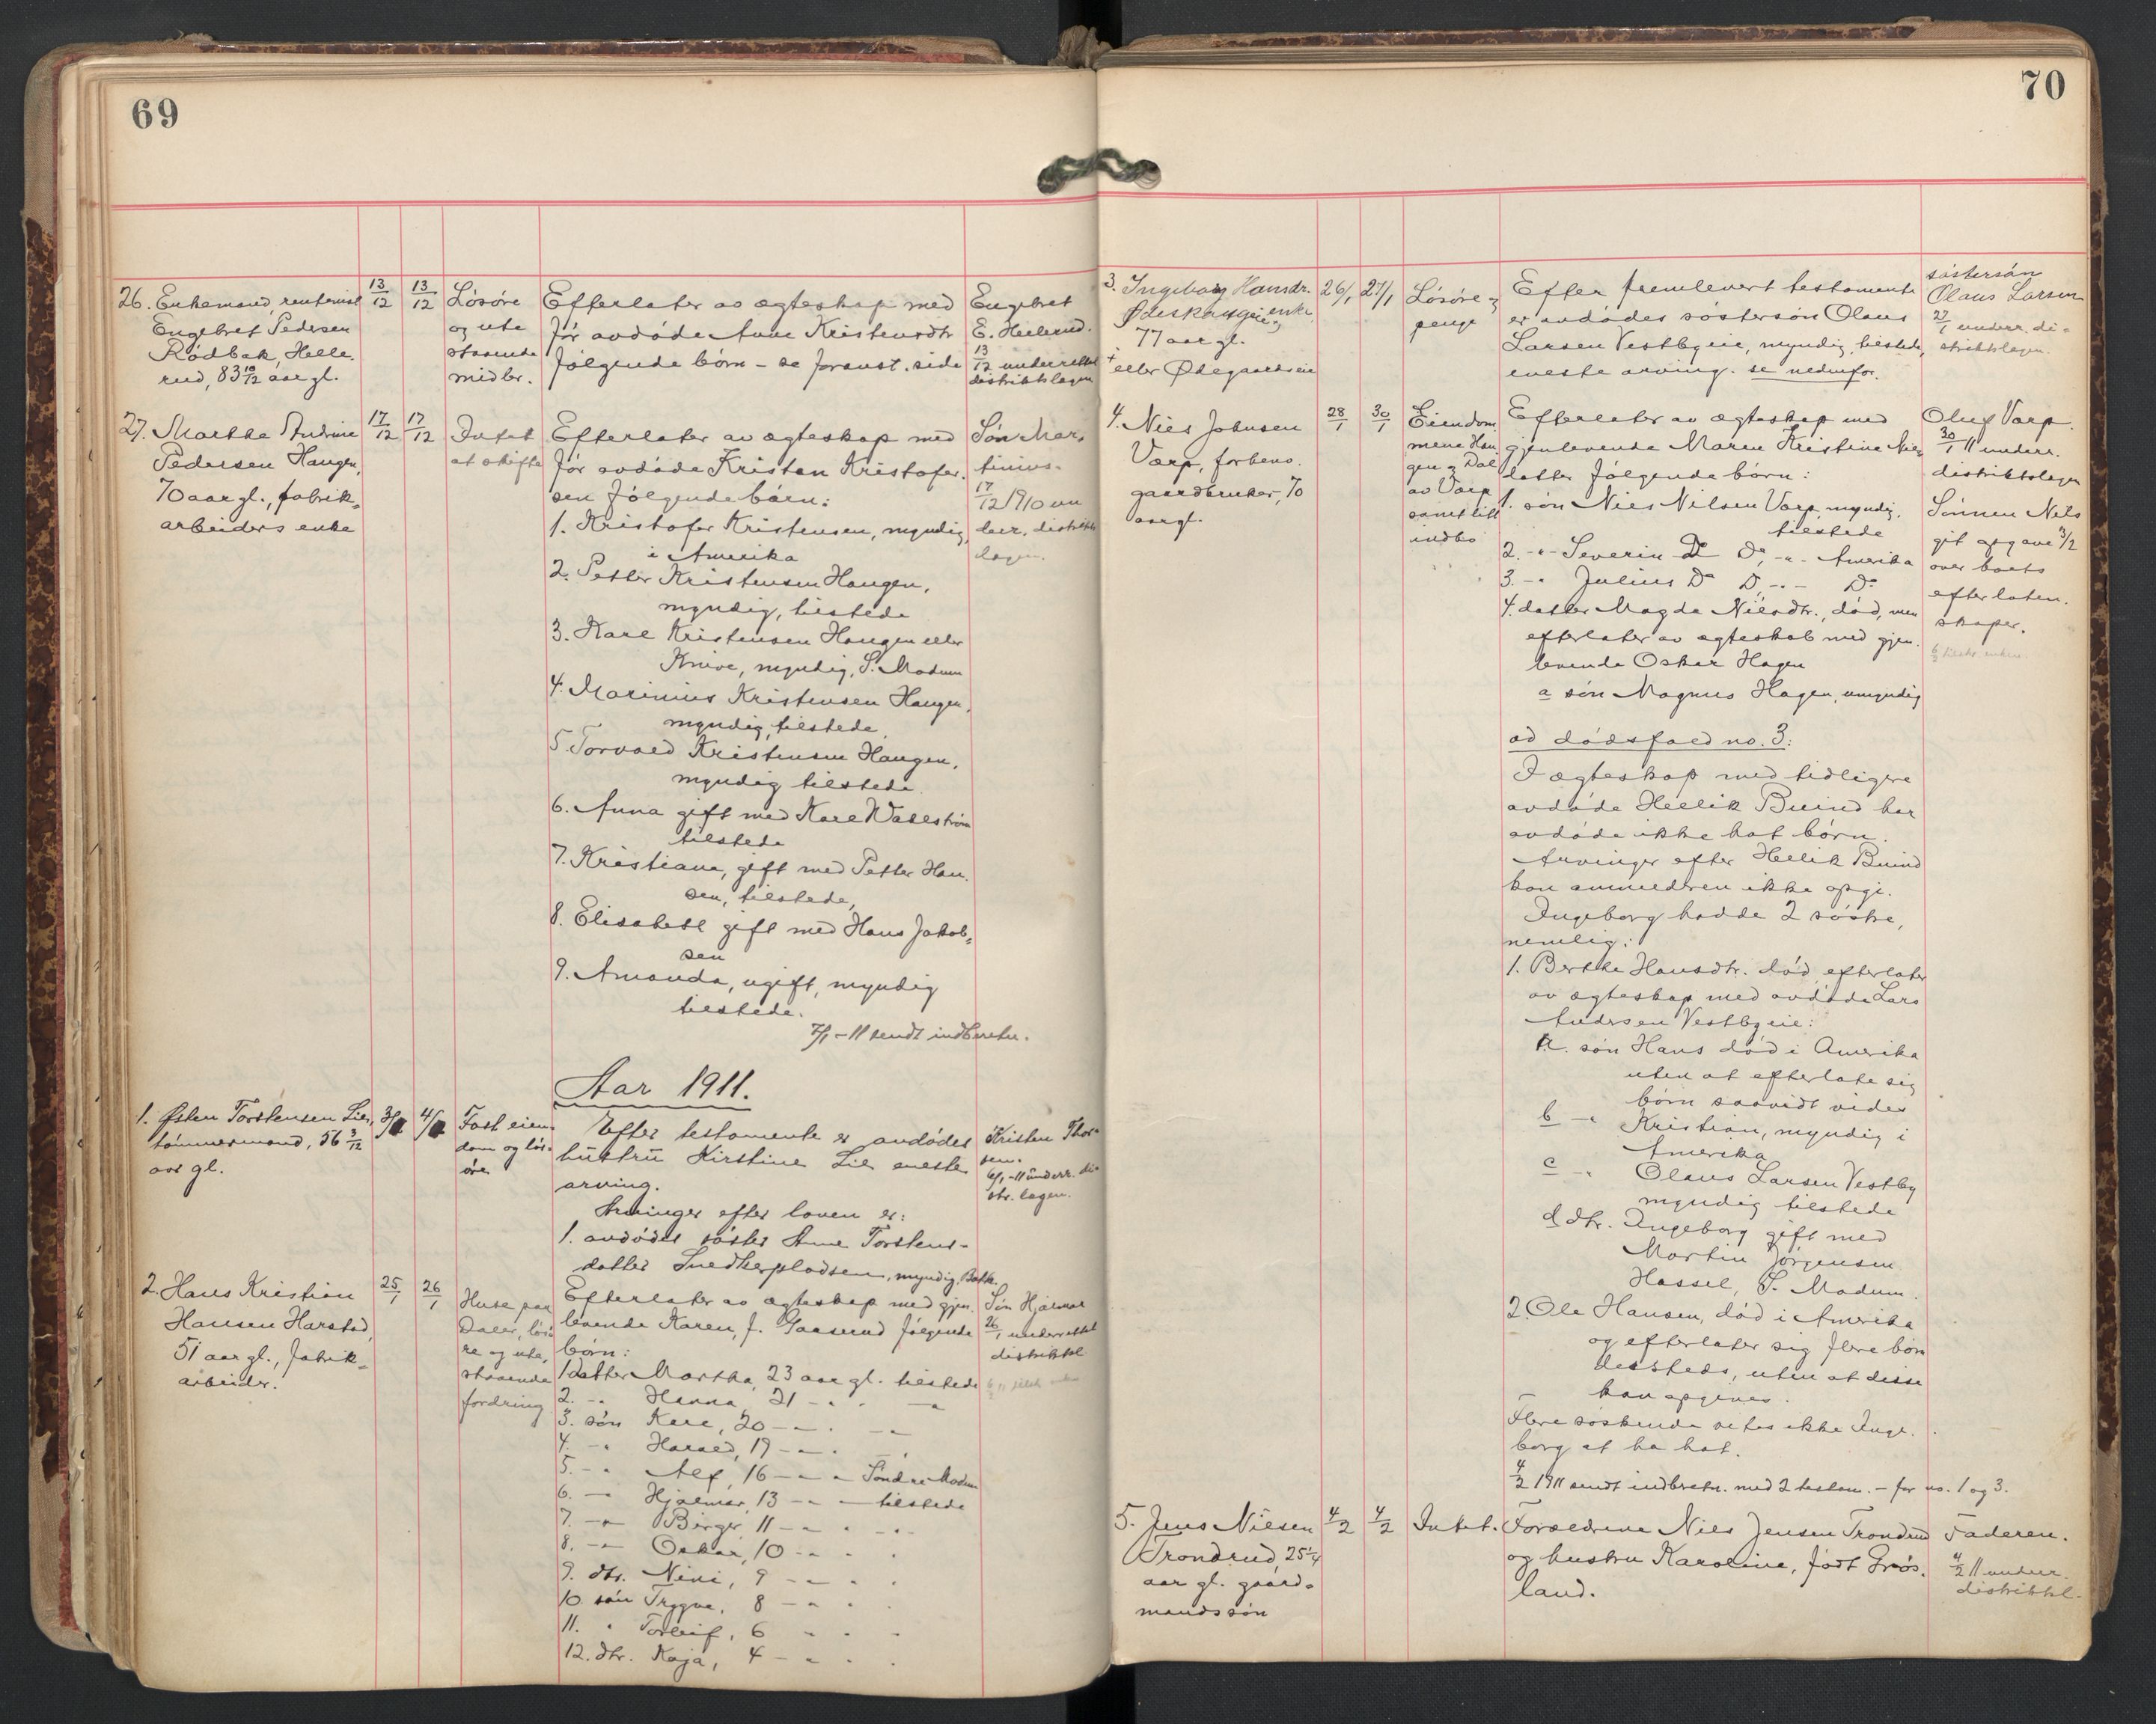 69
26. Enkemand, rentenist
Engebret Pedersen
Rödbak, Helle-
rud, 83 10/12 aar gl.
13/12
13/12
Lösöre
og ute
staaende
midler.
Efterlater av ægteskap med
för avdöde Anne Kristensdtr
følgende börn - se foranst. side
Engebret
E. Hellerud.
13/12 underrettet
distriktslagen
27. Marthe Andrine
Pedersen Haugen,
70 aar gl., fabrik-
arbeiders enke
17/12
17/12
Intet
at skifte
Efterlater av ægteskap med
för avdöde Kristen Kristofer-
sen følgende börn:
1. Kristofer Kristensen, myndig,
i Amerika
2. Petter Kristensen Haugen,
myndig, tilstede
3. Karl Kristensen Haugen eller
Knive, myndig, S. Modum
4. Marinius Kristensen Haugen,
myndig, tilstede
5. Torvald Kristensen Haugen,
myndig tilstede.
6. Anna gift med Karl Wallström
tilstede
7. Kristiane, gift med Petter Han-
sen, tilstede,
8. Elisabeth gift med Hans Jakob-
sen
9. Amanda, ugift, myndig
tilstede.
7/1 - 11 sendt indberetn.
Søn Mar-
tinius.
17/12 1910 un
derr. distrikts
lagen.
Aar 1911.
1. Østen Torstensen Lie,
tömmermand, 56 3/12
aar gl.
3/1
4/1
Fast eien-
dom og lös-
öre
Efter testamente er avdödes
hustru Kirstine Lie eneste
arving.
Arvinger efter loven er:
1. avdödes söster Anne Torstens-
datter Snedkerpladsen, myndig,
Kristen Thor-
sen.
6/1 - 11 underr. di-
str. lagen.
2. Hans Kristian
Hansen Harstad,
51 aar gl., fabrik-
arbeider.
25/1
26/1
Huse paa
Daler, lösö
re og ute,
staaende
fordring
Efterlater av ægteskap med gjen-
levende Karen, f. Gaaserud følgende
börn:
1 datter Martha, 23 aar gl. tilstede
2. -"- Hanna, 21 - " - "
3. sön Karl, 20 - " - "
4. -"- Harald, 19 - " - "
5. -"- Alf, 16 - " - Söndre Modum
6. -"- Hjalmar, 13 - " - tilstede
7. -"- Birger, 11 - " - "
8. -"- Oskar, 10 - " - "
9. dtr. Nini, 9 - " - "
10. sön Trygve, 8 - " - "
11. " Torleif, 6 " - "
12. dtr. Kaja, 4 - " - "
Søn Hjalmar
26/1 underrettet
distriktsl
70
3. Ingeborg Hansdr.
Ødeskaugeie, enke
77 aar gl.
+ eller Ødegaardseie
26/1
27/1
Lösöre og
penge
Efter fremlevert testamente
er avdödes söstersön Olaus
Larsen Vestbyeie, myndig, tilstede,
eneste arving. se nedenfor.
söstersön
Olaus Larsen
27/1 underr. di-
striktslagen.
4. Niels Johnsen
Varp, forhenv.
gaardbruker, 70
aar gl.
28/1
30/1
Eiendom-
mene Hau-
gen og Dal
av Varp
samt litt
indbo
Efterlater av ægteskap med
gjenlevende Maren Kristine Niels
datter følgende börn:
1. sön Niels Nilsen Varp, myndig,
tilstede
2. -"- Severin Do Do, -"- Amerika
3. -"- Julius Do D, -"- Do
4. datter Magda Nilsdtr., död, men
efterlater av ægteskab med gjen-
levende Oskar Hagen
a sön Magnus Hagen, umyndig
Oluf Varp.
30/1 11 underr.
distriktslagen
Sönnen Nils
git opgave 3/2
over boets
efterlaten-
skaper.
ad dödsfald no. 3:
I ægteskap med tidligere
avdöde Hellik Buind har
avdöde ikke hat börn.
Arvinger efter Hellik Buind
kan anmelderen ikke opgi.
Ingeborg hadde 2 söstre,
nemlig:
1. Berthe Hansdtr. död, efterlater
av ægteskap med avdöde Lars
Andersen Vestbyeie:
a. sön Hans död i Amerika
uten at efterlate sig
börn saavidt vides
b -"- Kristian, myndig i
Amerika
c -"- Olaus Larsen Vestby
myndig tilstede
d dtr. Ingeborg gift med
Martin Jörgensen
Hassel, S. Modum.
2. Ole Hansen, död i Amerika
og efterlater sig flere börn
dersteds, uten at disse
kan opgives.
Flere söskende vites ikke Inge-
borg at ha hat.
4/2 1911 sendt indberetn. med 2 testam. - for no. 1 og 3.
5. Jens Nilsen
Trondrud, 25 1/4
aar gl. gaard-
mandssön
4/2
4/2
Intet.
Forældrene Niels Jensen Trondrud
og hustru Karoline, født Grös-
land.
Faderen.
4/2 11 underr.
distriktsl.